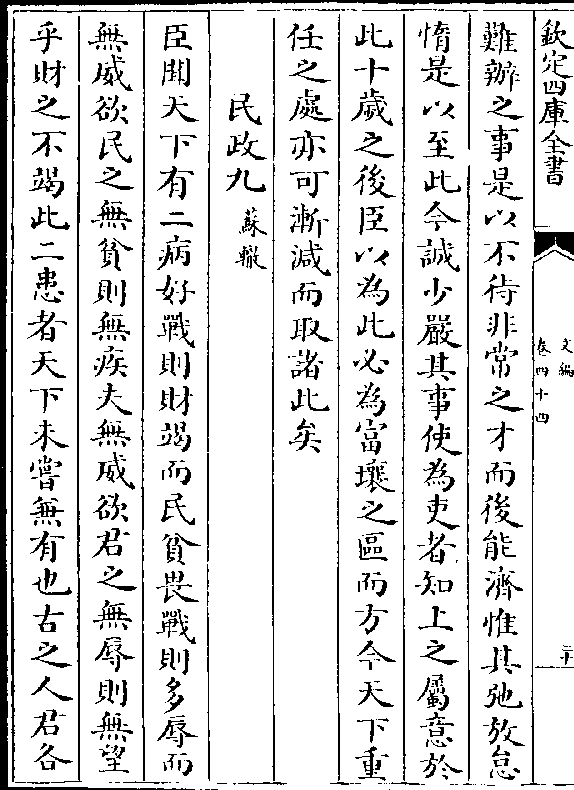 欽定四庫全書
文編
卷四十四
二十
難辦之事是以不待非常之才而後能濟惟其弛放怠
惰是以至此今誠少嚴其事使為吏者知上之屬意於
此十歲之後臣以為此必為富壤之區而方今天下重
任之處亦可漸減而取諸此矣
民政九 蘇轍
臣聞天下有二病好戰則財竭而民貧畏戰則多辱而
無威欲民之無貧則無疾夫無威欲君之無辱則無望
乎財之不竭此二患者天下未嘗無有也古之人君各